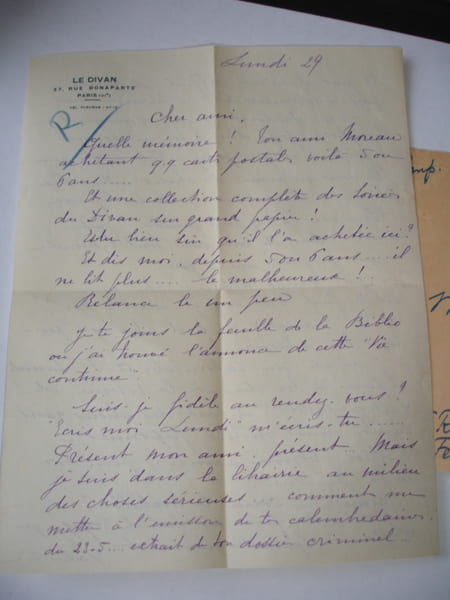 LE DIVAN
37, RUE BONAPARTE
PARIS (VIe)
TÉL. FLEURUS
Lundi 29
R/
Cher ami,
Quelle mémoire ! Ton ami Moreau
achetant qq cartes postales voilà 5 ou
6 ans.....
Et une collection complète des Soirées
du Divan sur grand papier !
Es-tu bien sûr qu'il l'a achetée ici ?
Et dis moi, depuis 5 ou 6 ans.... il
ne lit plus..... le malheureux !..
Relance le un peu
Je te joins la feuille de la Biblio
où j'ai trouvé l'annonce de cette "Vie
continue"
Suis-je fidèle au rendez-vous ?
"Ecris moi Lundi" m'écris-tu......
Présent mon ami, présent. Mais
je suis dans la librairie au milieu
des choses sérieuses.... comment me
mettre à l'unisson de tes
du 23-5.... extrait de ton dossier criminel...
mp.